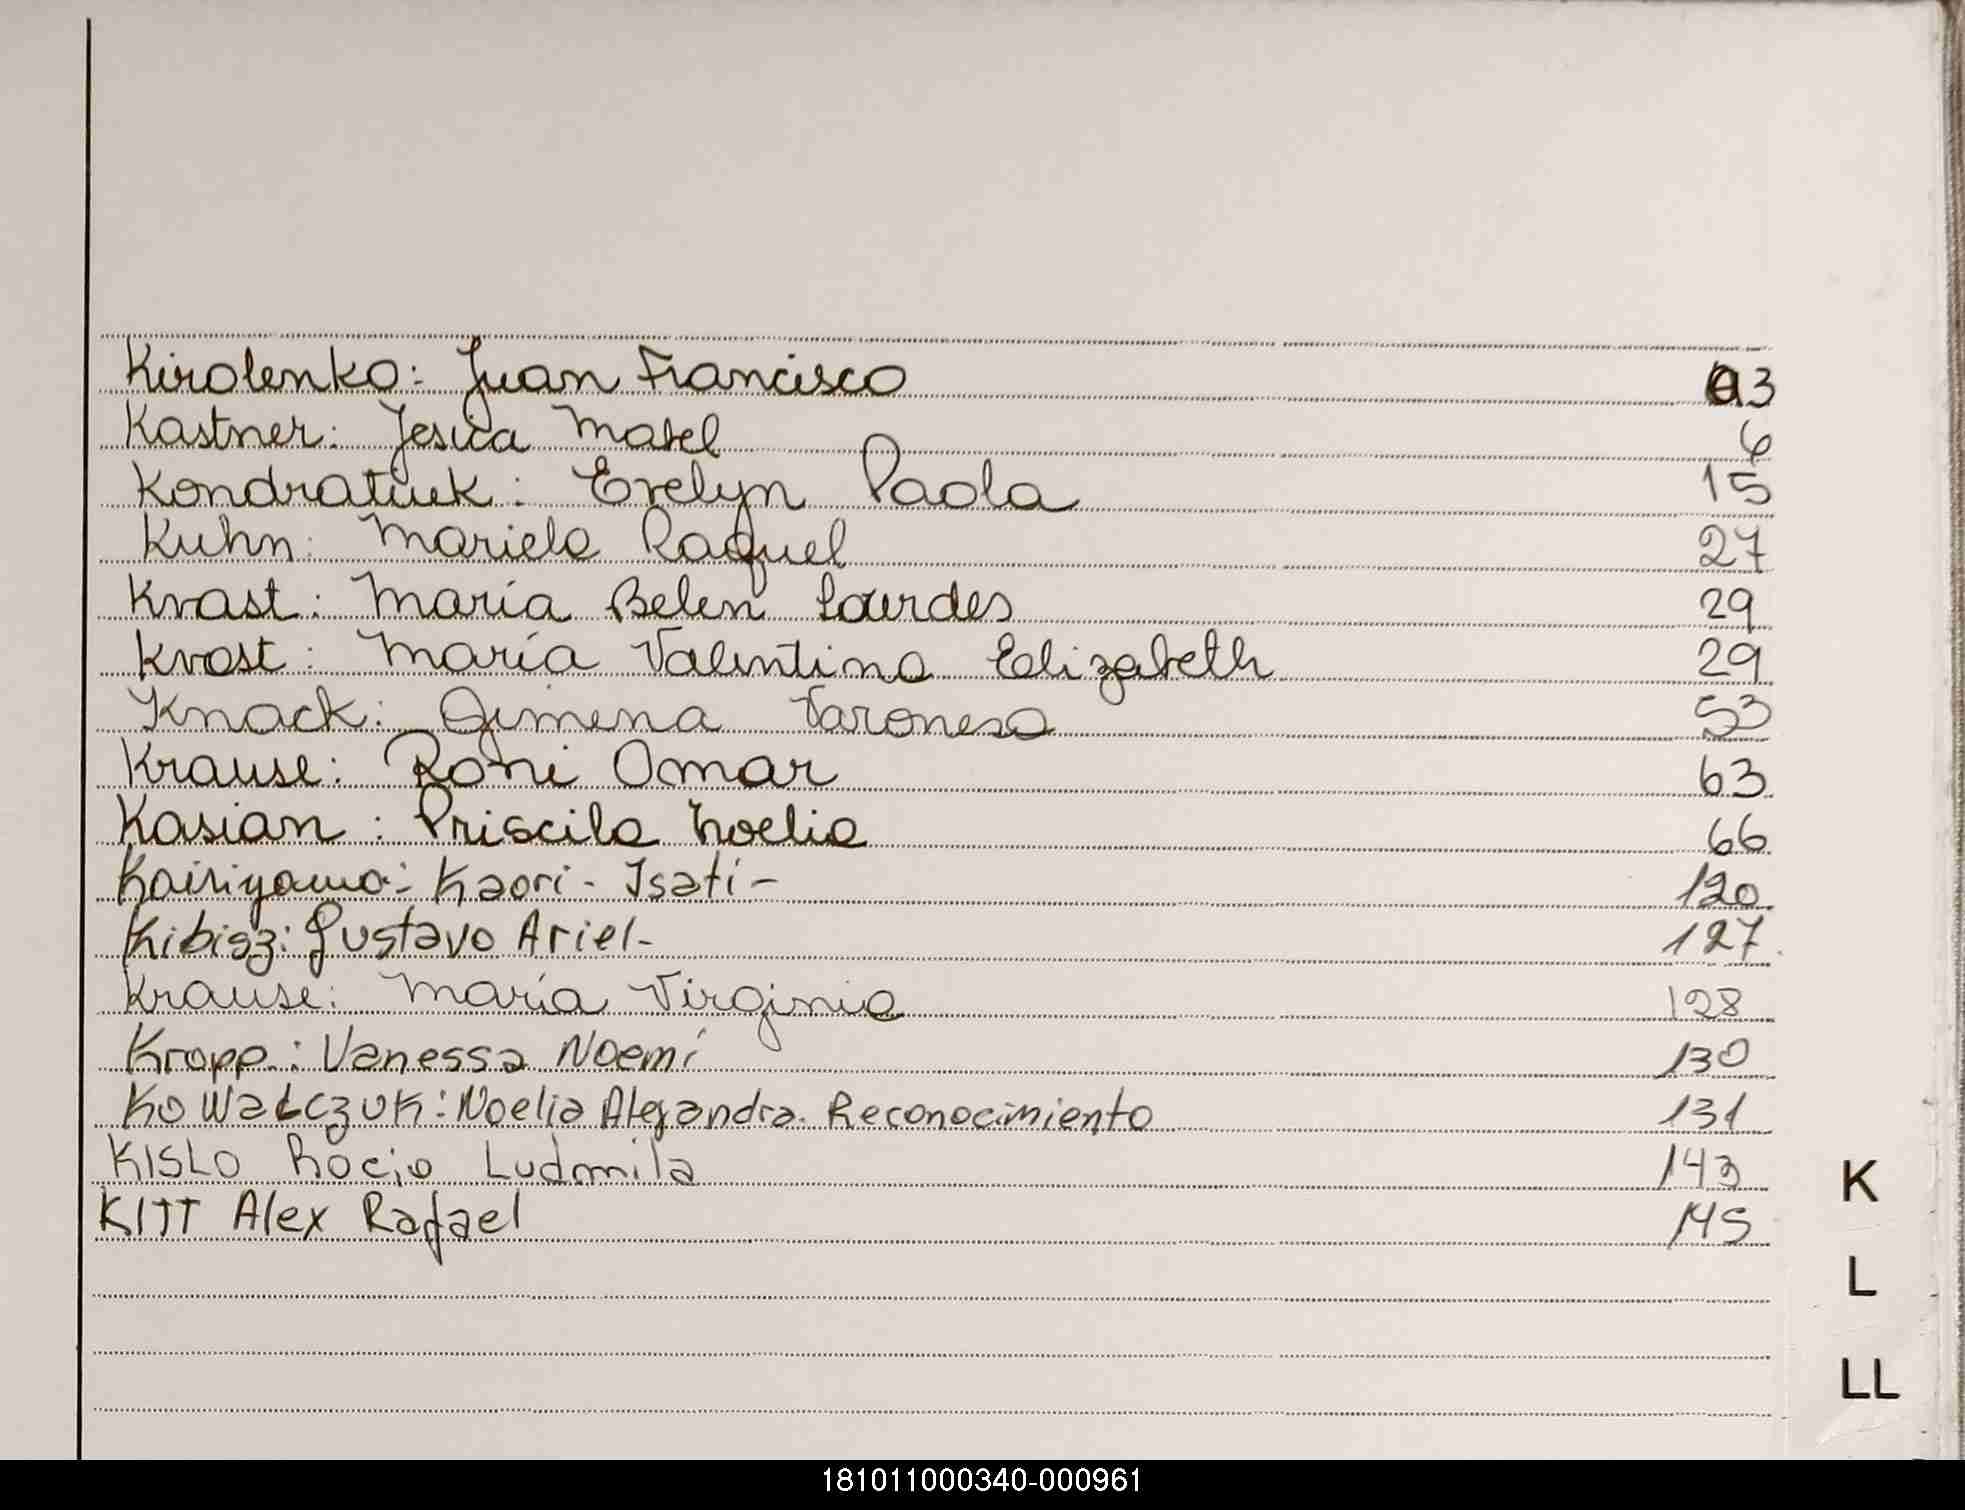 Kirolenko: Juan Francisco 3
Kastner: Jesica Mabel 6
Kondratiuk: Evelyn Paola 15
Kuhn: Mariela Raquel 27
Kvast: María Belen Lourdes 29
Kvast: María Valentina Elizabeth 29
Knack: Gimena Varonesa 53
Krause: Roni Omar 63
Kasian: Priscila Noelia 66
Kairiyama: Kaori - Isati - 120
Kibisz: Gustavo Ariel - 127
Krause: María Virginia 128
Kropp: Vanessa Noemí 130
Kowalczuk: Noelia Alejandra. Reconocimiento 131
KISLO Rocio Ludmila 143
KITT Alex Rafael 145
K
L
LL
181011000340-000961